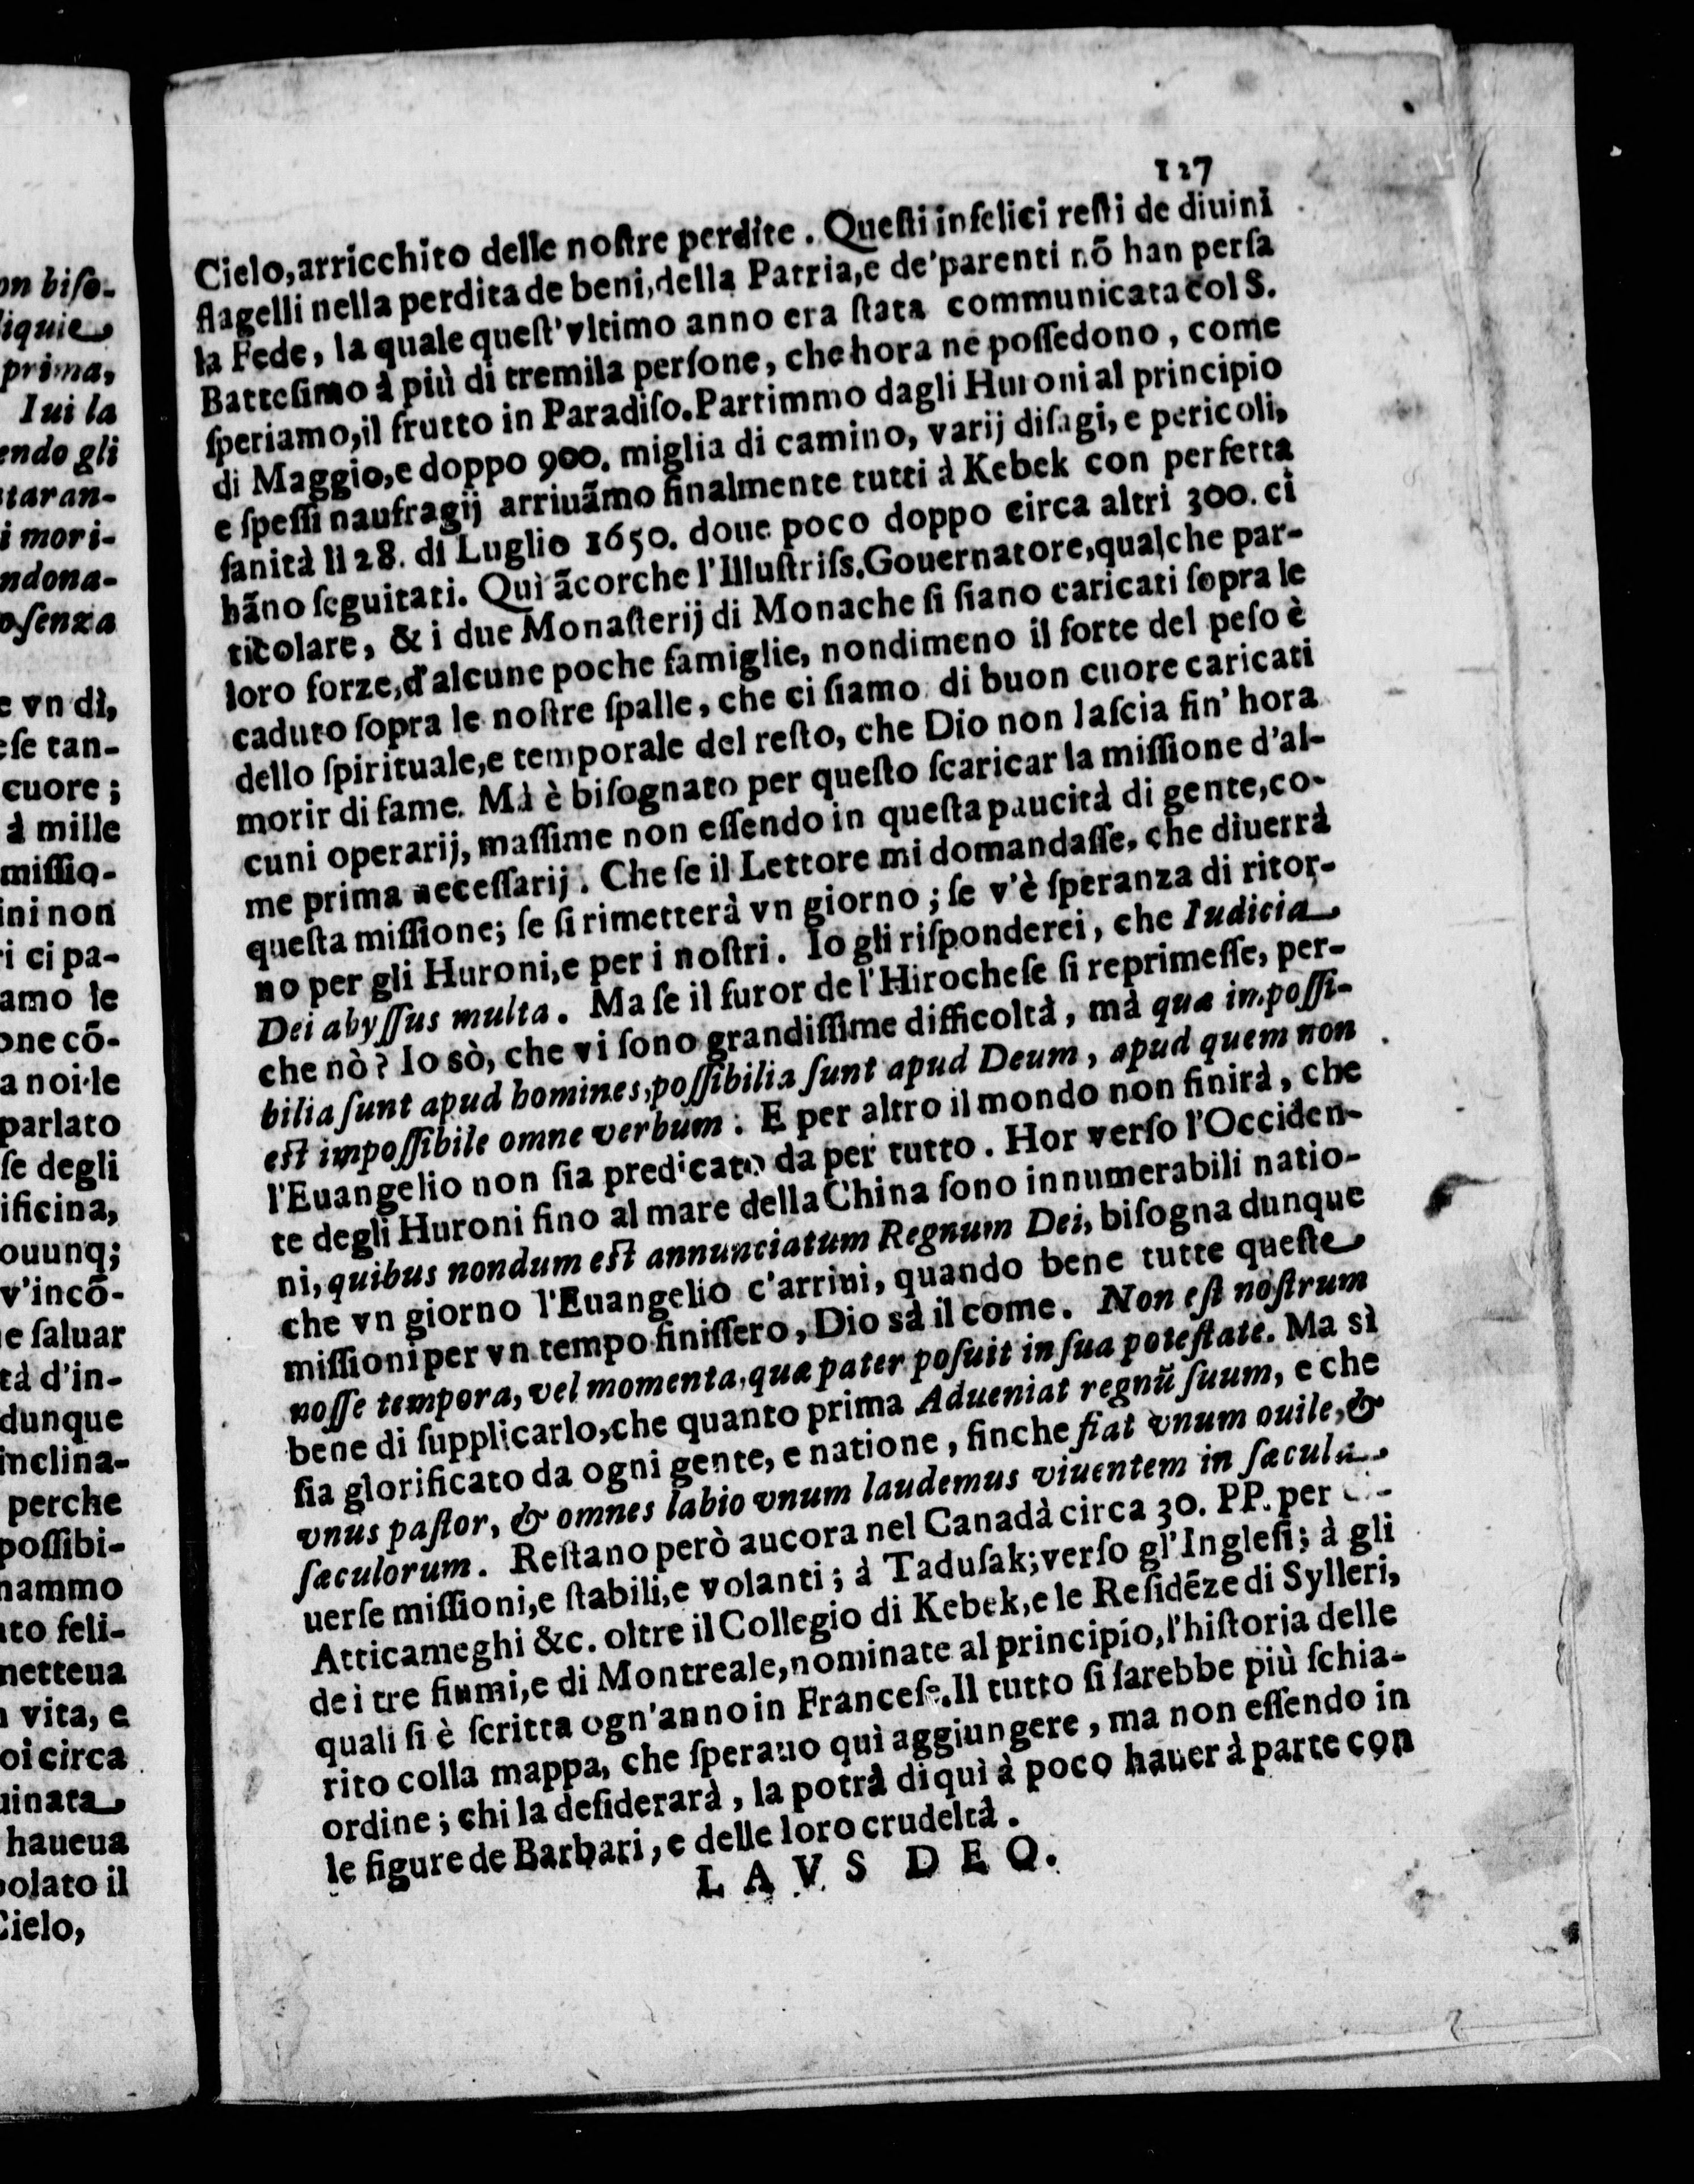 127
Cielo, arricchito delle noſtre perdite. Queſti infelici reſti de diuini
flagelli nella perdita de beni, della Patria, e de'parenti nõ han perſa
la Fede, la quale queſt'vltimo anno era ſtata communicata col S.
Batteſimo à più di tremila perſone, che hora ne poſſedono, come
ſperiamo, il frutto in Paradiſo. Partimmo dagli Huroni al principio
di Maggio, e doppo 900. miglia di camino, varij diſagi, e pericoli,
e ſpeſſi naufragij arriuãmo finalmente tutti à Kebek con perfetta
ſanità li 28. di Luglio 1650. doue poco doppo circa altri 300. ci
hãno ſeguitati. Quì ãcorche l'Illuſtriſs. Gouernatore, qualche par-
ticolare, & i due Monaſterij di Monache ſi ſiano caricati ſopra le
loro forze, d'alcune poche famiglie, nondimeno il forte del peſo è
caduto ſopra le noſtre ſpalle, che ci ſiamo di buon cuore caricati
dello ſpirituale, e temporale del reſto, che Dio non laſcia fin' hora
morir di fame. Mà è biſognato per queſto ſcaricar la miſſione d'al-
cuni operarij, maſſime non eſſendo in queſta paucità di gente, co-
me prima neceſſarij. Che ſe il Lettore mi domandaſſe, che diuerrà
queſta miſſione; ſe ſi rimetterà vn giorno; ſe v'è ſperanza di ritor-
no per gli Huroni, e per i noſtri. Io gli riſponderei, che Iudicia
Dei abyſſus multa. Ma ſe il furor de l'Hirocheſe ſi reprimeſſe, per-
che nò? Io sò, che vi ſono grandiſſime difficoltà, mà quæ impoſſi-
bilia ſunt apud homines, poſſibilia ſunt apud Deum, apud quem non
eſt impoſſibile omne verbum. E per altro il mondo non finirà, che
l'Euangelio non ſia predicato da per tutto. Hor verſo l'Occiden-
te degli Huroni fino al mare della China ſono innumerabili natio-
ni, quibus nondum eſt annunciatum Regnum Dei, biſogna dunque
che vn giorno l'Euangelio c'arriui, quando bene tutte queſte
miſſioni per vn tempo finiſſero, Dio sà il come. Non eſt noſtrum
noſſe tempora, vel momenta, quæ pater poſuit in ſua poteſtate. Ma sì
bene di ſupplicarlo, che quanto prima Adueniat regnũ ſuum, e che
ſia glorificato da ogni gente, e natione, finche fiat vnum ouile, &
vnus paſtor, & omnes labio vnum laudemus viuentem in ſæcula
ſæculorum. Reſtano però aucora nel Canadà circa 30. PP. per
uerſe miſſioni, e ſtabili, e volanti; à Taduſak; verſo gl'Ingleſi; à gli
Atticameghi &c. oltre il Collegio di Kebek, e le Reſidẽze di Sylleri,
de i tre fiumi, e di Montreale, nominate al principio, l'hiſtoria delle
quali ſi è ſcritta ogn'anno in Franceſe. Il tutto ſi ſarebbe più ſchia-
rito colla mappa, che ſperauo quì aggiungere, ma non eſſendo in
ordine; chi la deſiderarà, la potrà di quì à poco hauer à parte con
le figure de Barbari, e delle loro crudeltà.
LAVS DEO.
on biſo-
liquie
prima,
Iui la
endo gli
taran-
i mori-
ndona-
oſenza
e vn dì,
eſe tan-
cuore;
à mille
miſſio-
ini non
i ci pa-
amo le
one cõ-
a noi le
parlato
ſe degli
ificina,
ouunq;
v'incõ-
e ſaluar
tà d'in-
dunque
inclina-
perche
poſſibi-
nammo
ato feli-
metteua
vita, e
oi circa
uinata
haueua
polato il
Cielo,